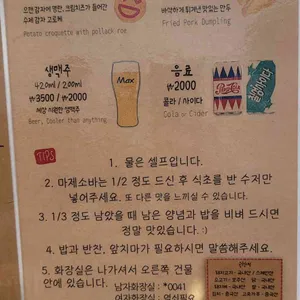 오랜 감자에 명란, 크림치즈가 들어간
수제 감자 고로케
Potato croquette with pollack roe
바삭하게 튀겨낸 맛있는 만두
Fried Pork Dumpling
생맥주
420ml / 2,00ml
₩3500 / ₩2000
세상 시원한 생맥주
Beer, Cooler than anything
Max
음료
₩2000
콜라 / 사이다
Cola or Cider
TIPS
1. 물은 셀프입니다.
2. 마제소바는 1/2 정도 드신 후 식초를 반 수저만
넣어주세요. 또 다른 맛을 느끼실 수 있습니다.
3. 1/3 정도 남았을 때 남은 양념과 밥을 비벼 드시면
정말 맛있습니다:)
4. 밥과 반찬, 앞치마가 필요하시면 말씀해주세요.
5. 화장실은 나가셔서 오른쪽 건물
안에 있습니다.
남자화장실 : *0041
여자화장실 : 열쇠필요